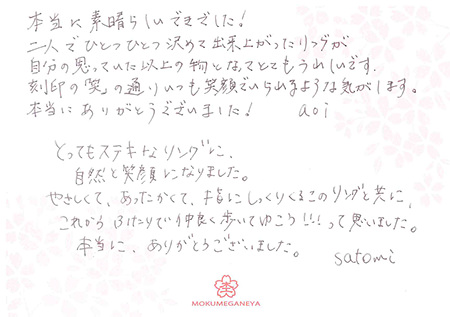 本当に素晴らしいできでした!
二人でひとつひとつ決めて出来上がったリングが
自分の思っていた以上の物となてとてもうれしいです.
刻印の「笑」の通りいつも笑顔でいられるような気がします。
本当にありがとうございました! aoi
とってもステキなリングに、
自然と笑顔になりました。
やさしくて、あったかくて、指にしっくりくるこのリングと共に、
これから ふたりで仲良く歩いてゆこう!!! って思いました。
本当に、ありがとうございました。 satomi
MOKUMEGANEYA